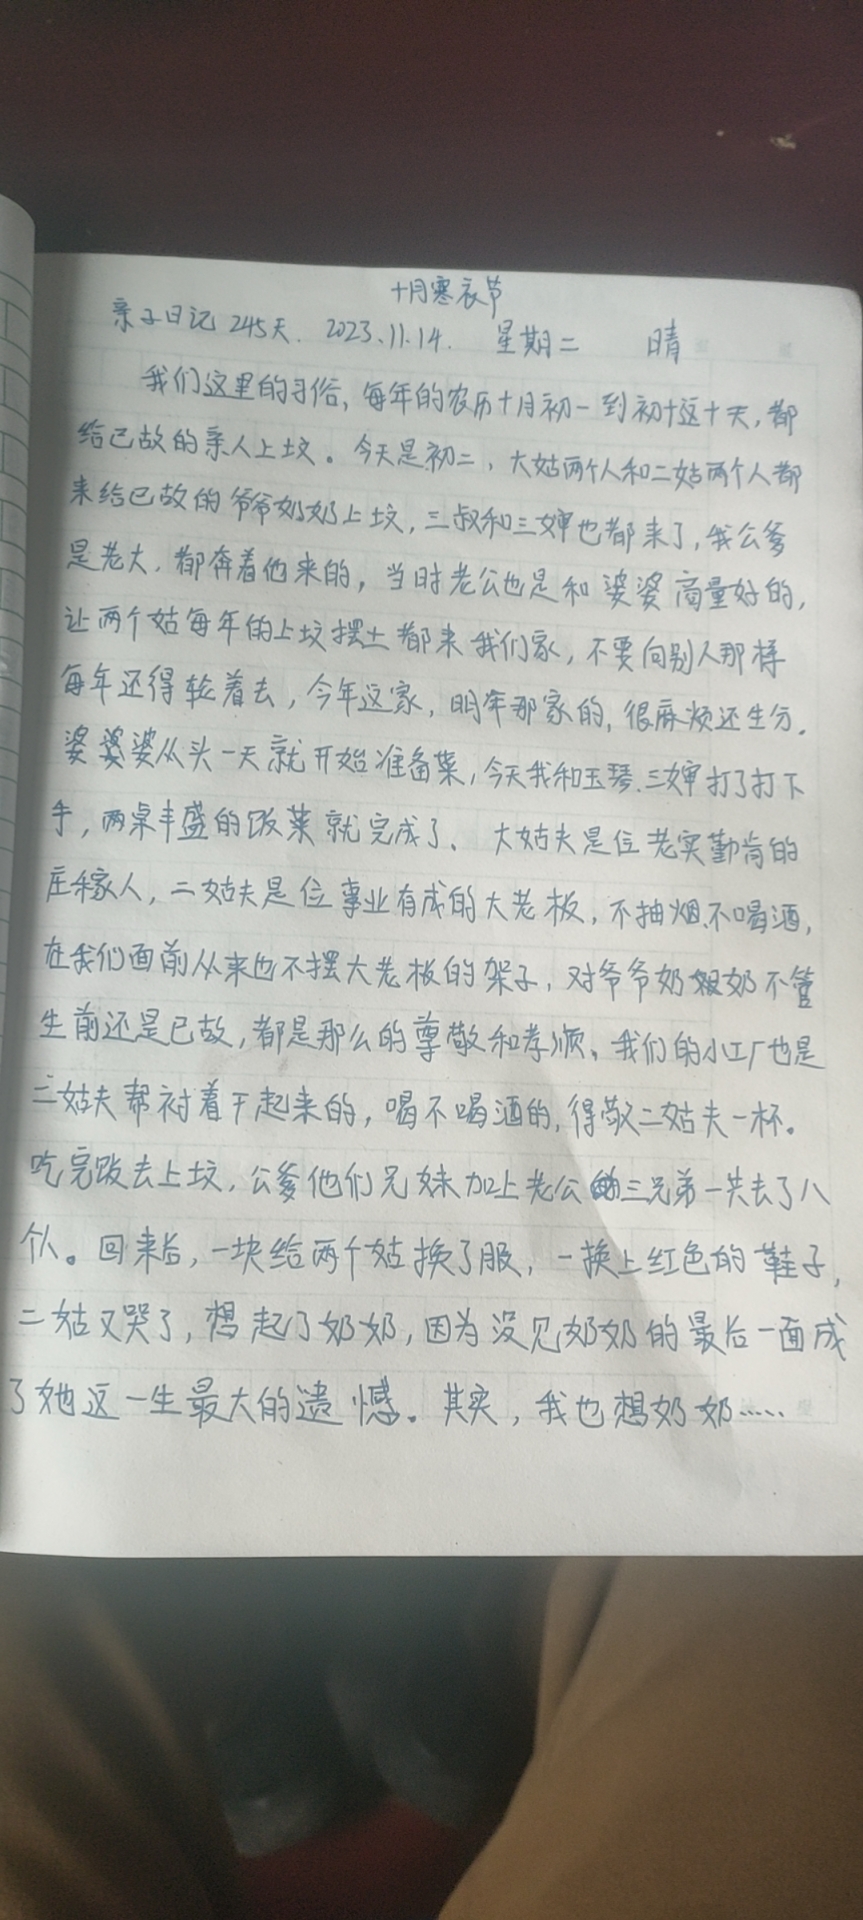 十月寒衣节
亲子日记 245天. 2023.11.14. 星期二 晴
我们这里的习俗，每年的农历十月初一到初十这十天，都
给已故的亲人上坟。今天是初二，大姑两个人和二姑两个人都
来给已故的爷爷奶奶上坟，三叔和三婶也都来了，我公爹
是老大，都奔着他来的，当时老公也是和婆婆商量好的，
让两个姑每年的上坟摆土都来我们家，不要向别人那样
每年还得轮着去，今年这家，明年那家的，很麻烦还生分。
婆婆婆从头一天就开始准备菜，今天我和玉琴、三婶打了打下
手，两桌丰盛的饭菜就完成了、大姑夫是位老实勤肯的
庄稼人，二姑夫是位事业有成的大老板，不抽烟、不喝酒，
在我们面前从来也不摆大老板的架子，对爷爷奶奶不管
生前还是已故，都是那么的尊敬和孝顺。我们的小工厂也是
二姑夫帮衬着干起来的，喝不喝酒的，得敬二姑夫一杯。
吃完饭去上坟，公爹他们兄妹加上老公三兄弟一共去了八
个人。回来后，一块给两个姑换了服，一换上红色的鞋子，
二姑又哭了，想起了奶奶，因为没见奶奶的最后一面成
了她这一生最大的遗憾。其实，我也想奶奶……